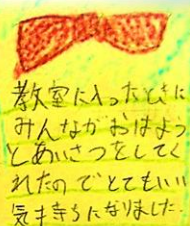 教室に入ったときに
みんながおはよう
とあいさつをしてく
れたのでとてもいい
気持ちになりました